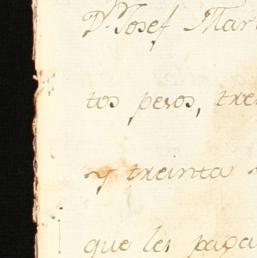 Dn. Josef Mar
tos pesos, tre
y treinta
que les paga